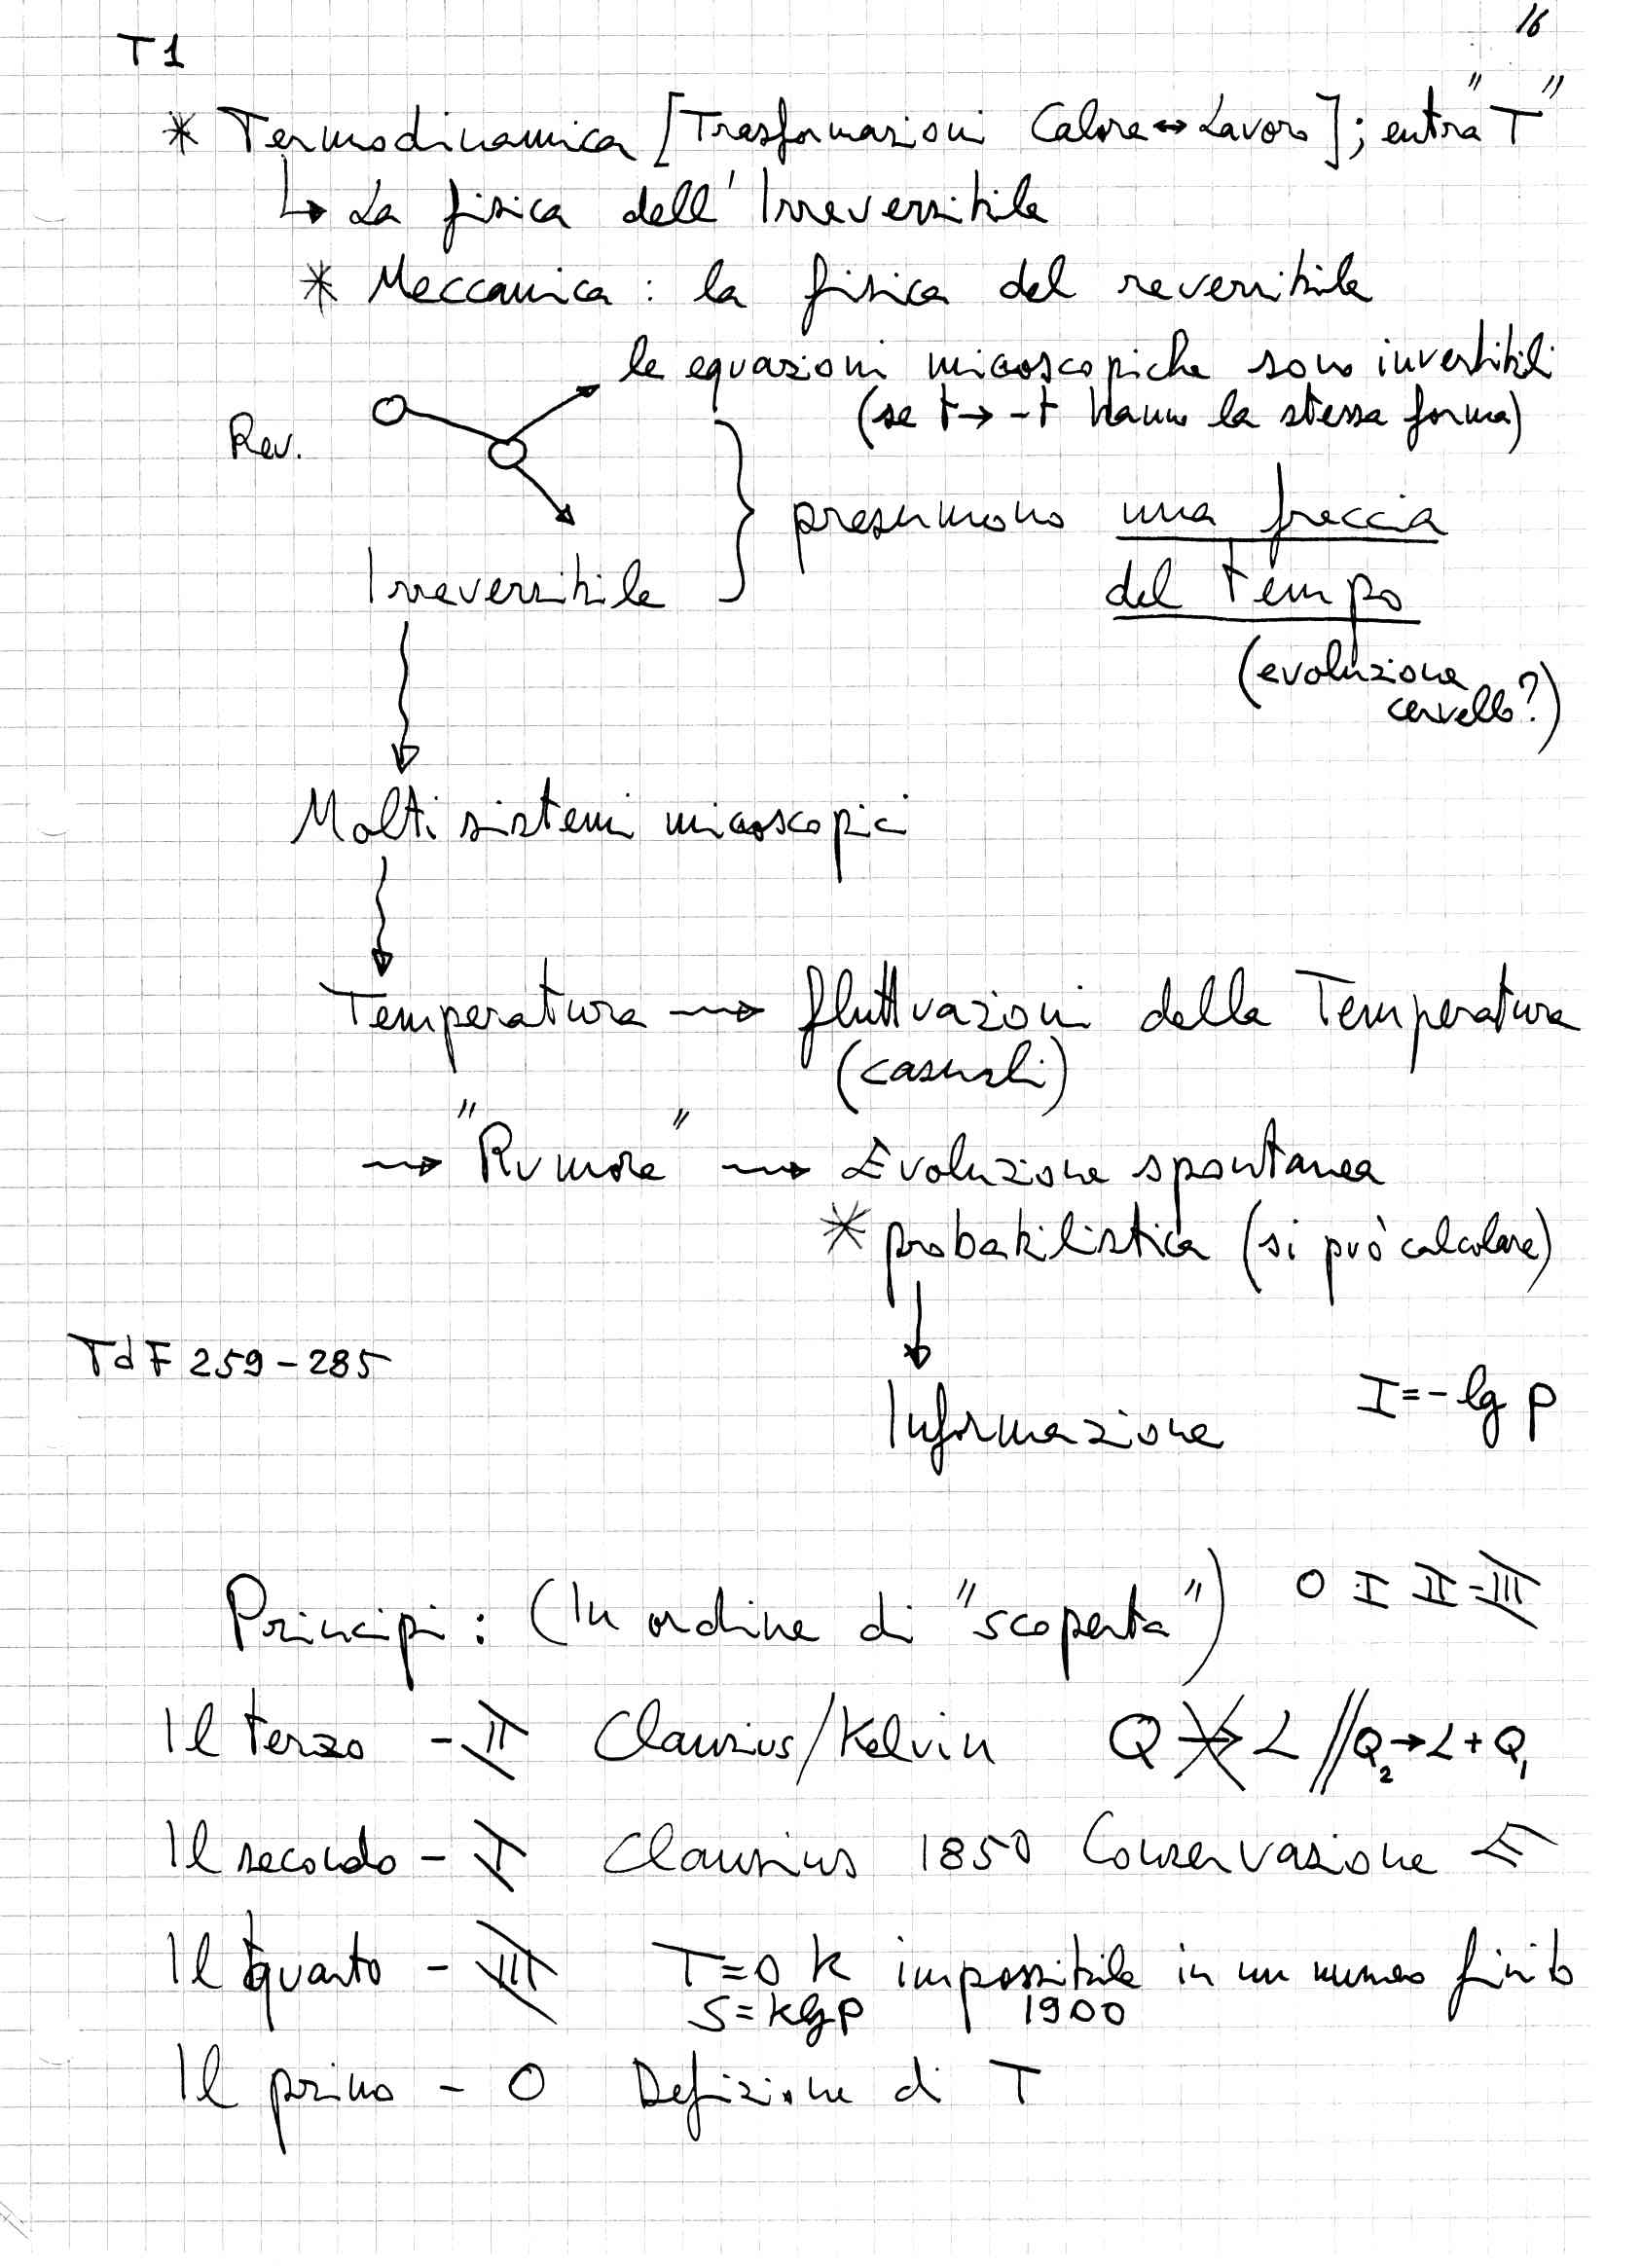 16
T1
* Termodinamica [Trasformazioni Calore ↔ Lavoro]; entra "T"
↳ La fisica dell'Irreversibile
* Meccanica : la fisica del reversibile
le equazioni microscopiche sono invertibili
(se t → -t hanno la stessa forma)
Rev.
presumono una freccia
del tempo
Irreversibile
(evoluzione
cervello?)
Molti sistemi microscopici
Temperatura → fluttuazioni della Temperatura
(casuali)
→ "Rumore" → Evoluzione spontanea
* probabilistica (si può calcolare)
TdF 259-285
Informazione I=-lg p
Principi : (In ordine di "scoperta") 0 I II III
Il terzo - II Clausius/Kelvin Q ↛ L // Q₂→L+Q₁
Il secondo - I Clausius 1850 Conservazione E
Il quarto - III T=0 K impossibile in un numero finito
S=klgp 1900
Il primo - 0 Defizione di T